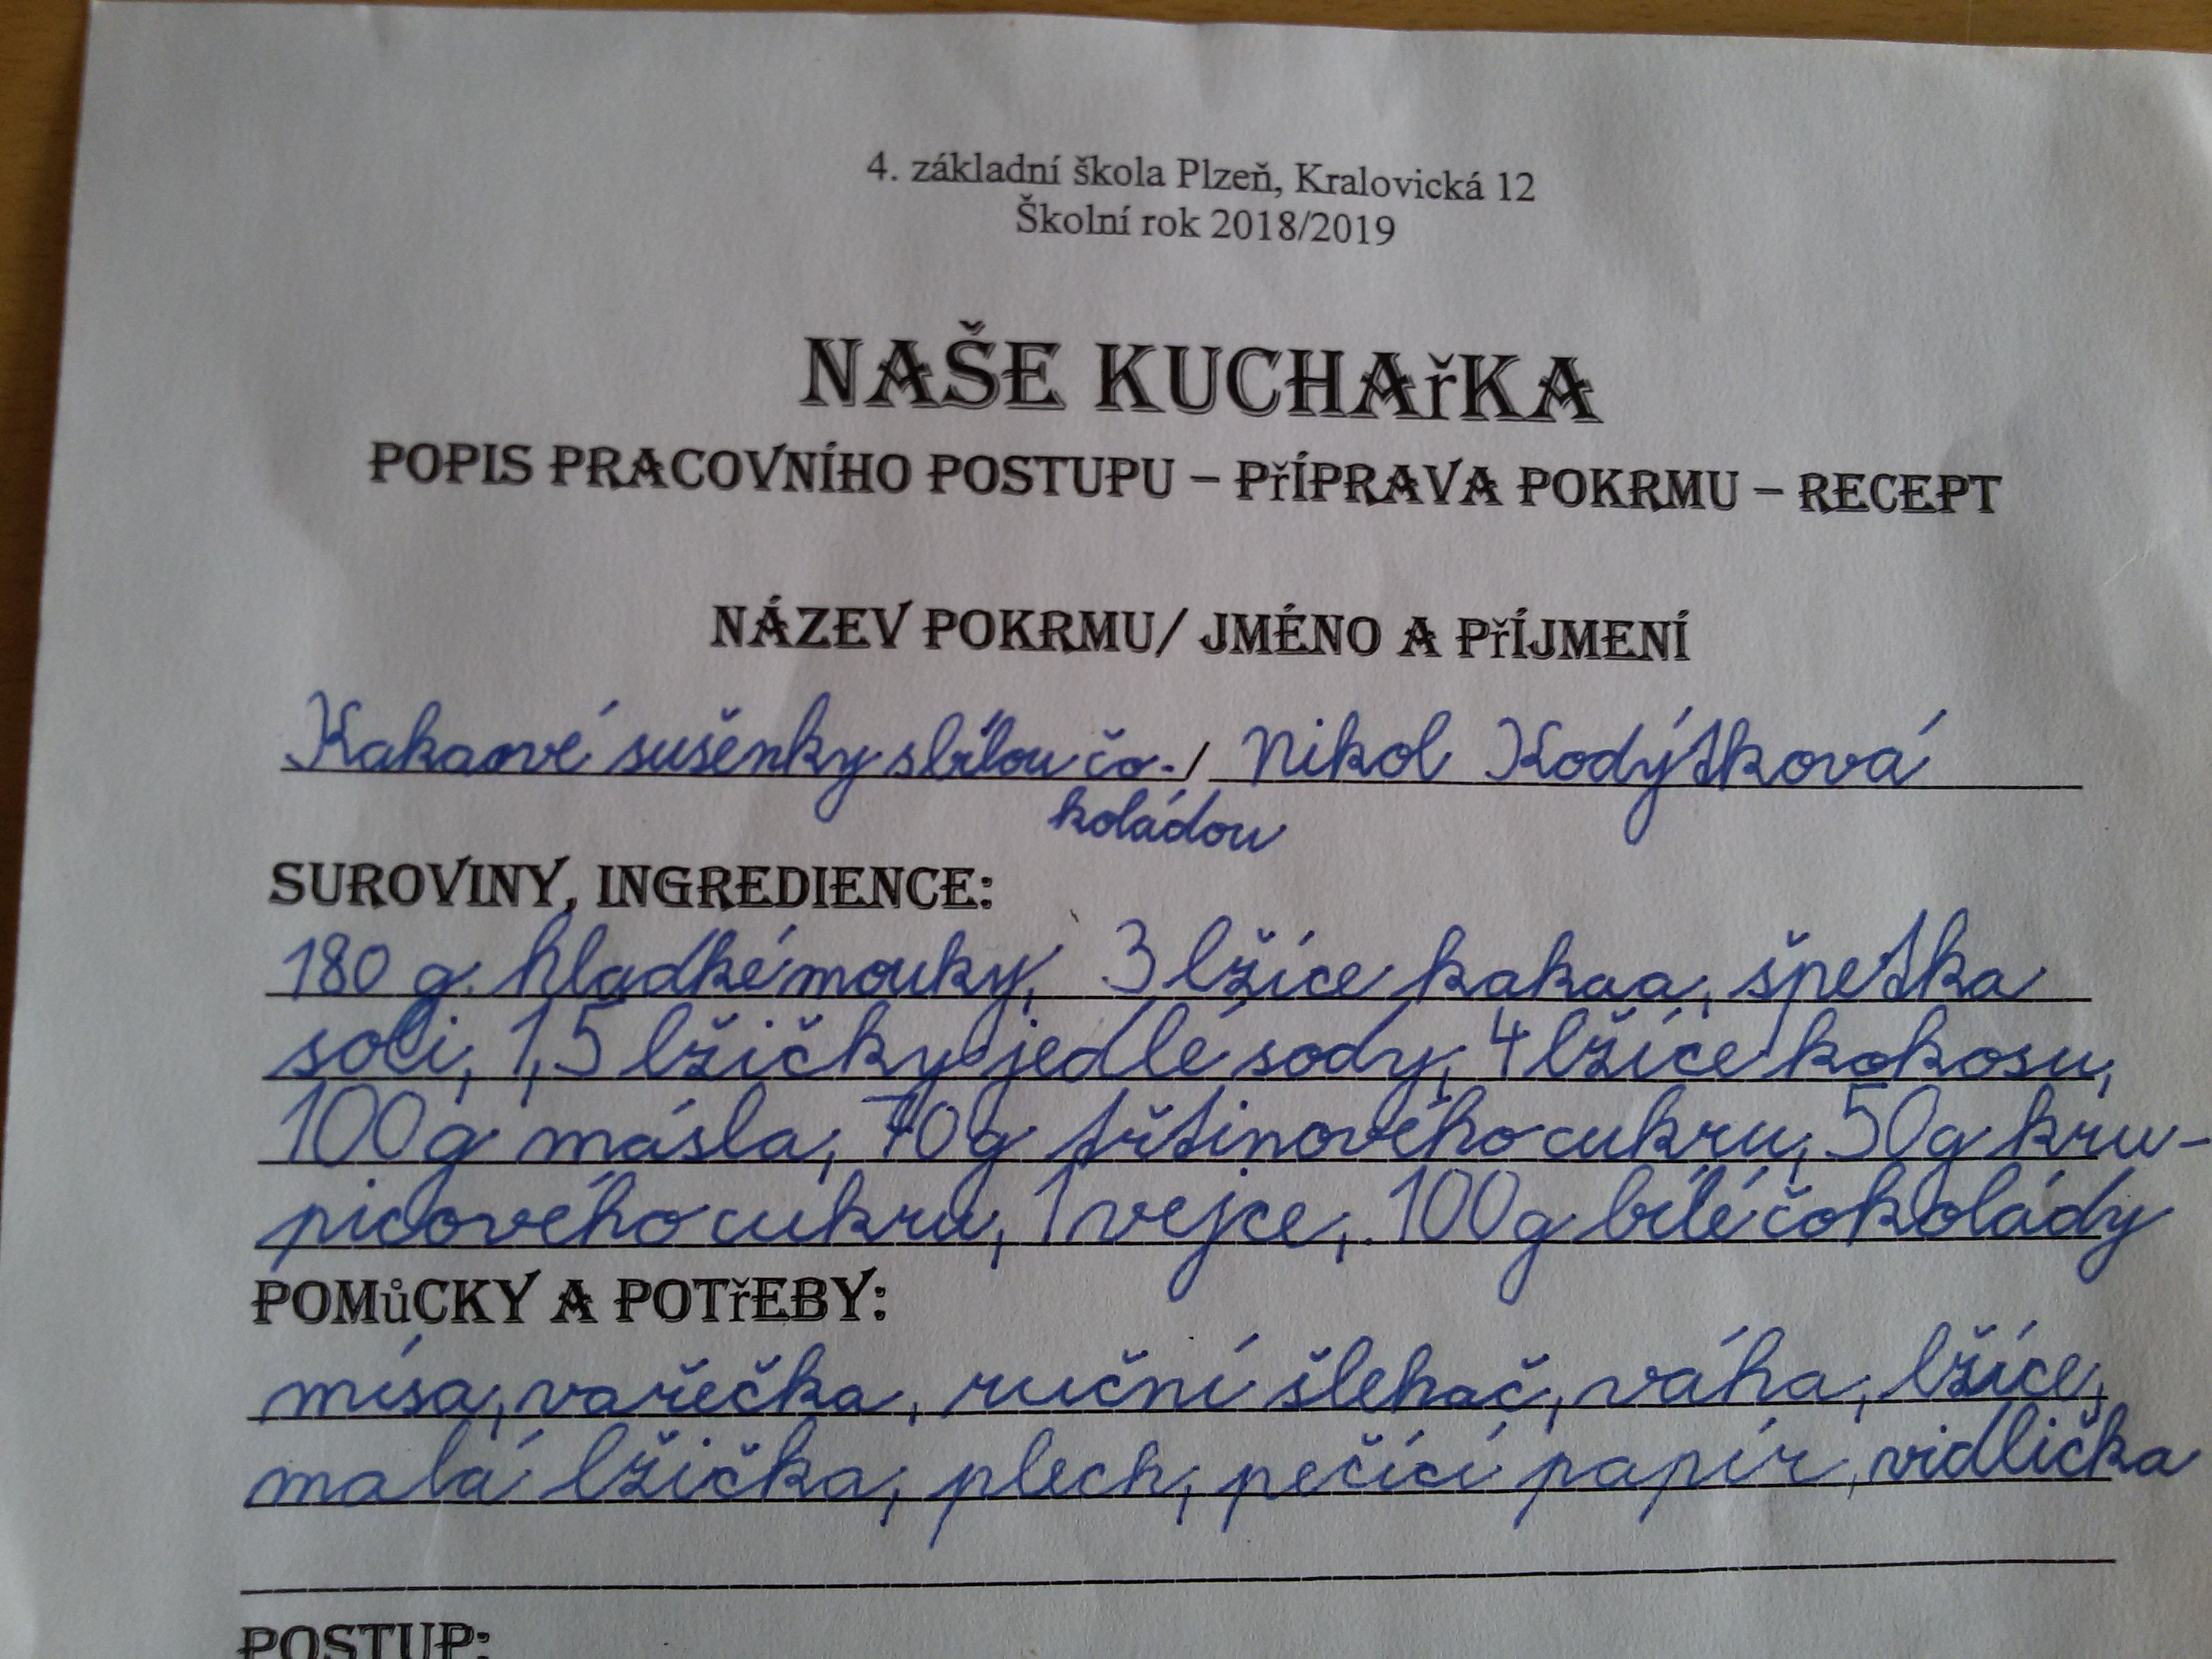 4. základní škola Plzeň, Kralovická 12
Školní rok 2018/2019
NAŠE KUCHAřKA
POPIS PRACOVNÍHO POSTUPU – PřÍPRAVA POKRMU – RECEPT
NÁZEV POKRMU/ JMÉNO A PřÍJMENÍ
Kakaové sušenky s bílou čo-/ Nikol Kodýtková
koládou
SUROVINY, INGREDIENCE:
180 g hladké mouky, 3 lžíce kakaa, špetka
soli, 1,5 lžičky jedlé sody, 4 lžíce kokosu,
100g másla, 70g třtinového cukru, 50g kru-
picového cukru, 1 vejce, 100g bílé čokolády
POMůCKY A POTřEBY:
mísa, vařečka, ruční šlehač, váha, lžíce,
malá lžička, plech, pečící papír, vidlička
POSTUP: